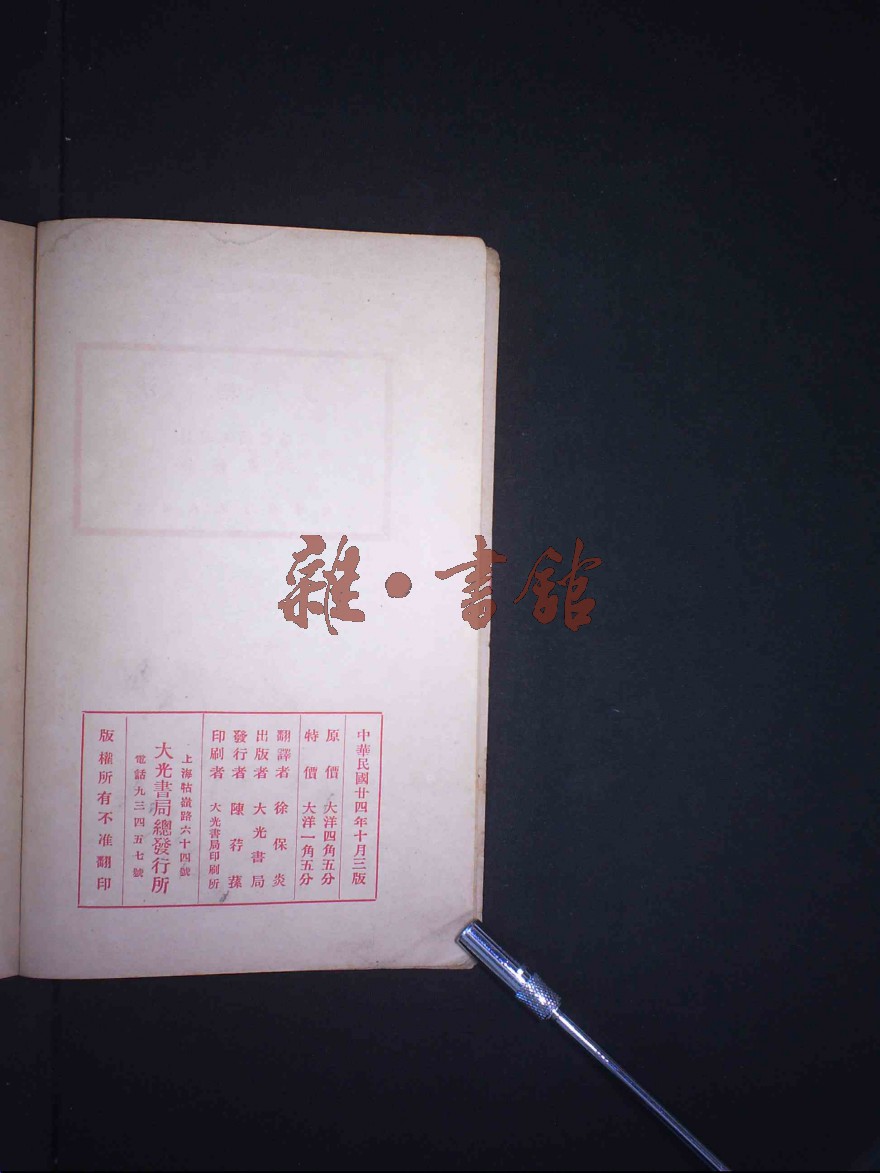 中華民國廿四年十月三版
原價 大洋四角五分
特價 大洋一角五分
翻譯者 徐保炎
出版者 大光書局
發行者 陳荇蓀
印刷者 大光書局印刷所
上海牯嶺路六十四號
大光書局總發行所
電話九三四五七號
版權所有不准翻印
雜·書館